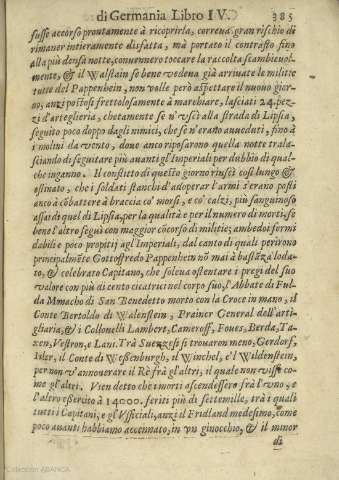 di Germania Libro IV. 385
fusse accorso prontamente à ricoprirla, correua gran rischio di
rimaner intieramente disfatta, mà portato il contrasto fino
alla più densa notte, conuennero toccare la raccolta scambieuol-
mente, & il Walstain se bene vedeua già arriuate le militie
tutte del Pappenhein, non volle però aspettare il nuouo gior-
no, anzi postosi frettolosamente à marchiare, lasciati 24. pez-
zi d'arteglieria, chetamente se n'vscì alla strada di Lipsia,
seguito poco doppo dagli nimici, che se n'erano aueduti, fino à
i molini da vento, doue anco riposarono quella notte trala-
sciando di seguitare più auanti gl'Imperiali per dubbio di qual-
che inganno. Il conflitto di questo giorno riuscì così lungo &
ostinato, che i soldati stanchi d'adoperar l'armi s'erano posti
anco à cōbattere à braccia co' morsi, e co' calzi, più sanguinoso
assai di quel di Lipsia, per la qualità e per il numero di morti, se
bene l'altro seguì con maggior cōcorso di militie; ambedoi formi
dabili e poco propitij agl'Imperiali, dal canto di quali perirono
principalmēte Gottoffredo Pappenhein nō mai à bastāza loda-
to, & celebrato Capitano, che soleua ostentare i pregi del suo
valore con più di cento cicatrici nel corpo suo, l'Abbate di Ful-
da Monacho di San Benedetto morto con la Croce in mano, il
Conte Bertoldo di Walenstein, Prainer General dell'arti-
gliaria, & i Collonelli Lambert, Cameroff, Foues, Berda, Ta-
xen, Vestron, e Lani. Trà Suezzesi si trouaron meno, Gerdorf,
Isler, il Conte di Wessenburgh, il Winchel, e'l Wildenstein,
per non v'annouerare il Rè frà gl'altri, il quale non visse co-
me gl'altri. Vien detto che i morti ascendessero frà l'vno, e
l'altro essercito à 14000. feriti più di settemille, trà i quali
tutti i Capitani, e gl'Vfficiali, anzi il Fridland medesimo, come
poco auanti habbiamo accennato, in vn ginocchio, & il minor
di
Colección ABANCA